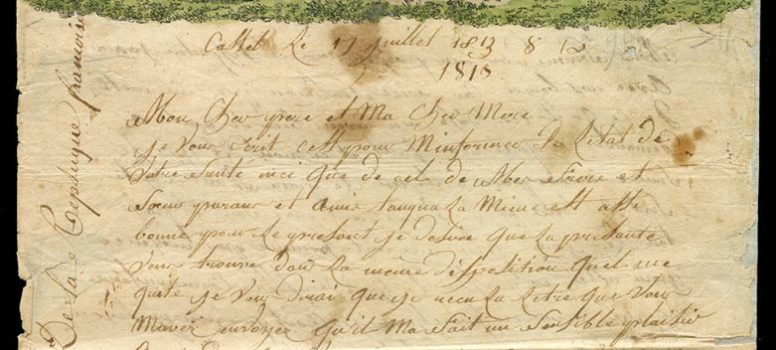 Cassel Le 17 juillet 1813 8 12
1818
Mon Cher pere et Ma Cher Mere
je Vous Ecrit cett pour Minformer de Letat de
Votre Sante insi que de cel de Mes frere et
Soeur parans et amis tanqua La Mienne est asse
bonne pour Le présant je desire que La présante
Vous trouve dans La meme disposition quel me
quite je Vous dirai que je recu La Letre que Vous
Mavez envoyez qu'il Ma fait un Sensible plaisir
De La Republique francoise